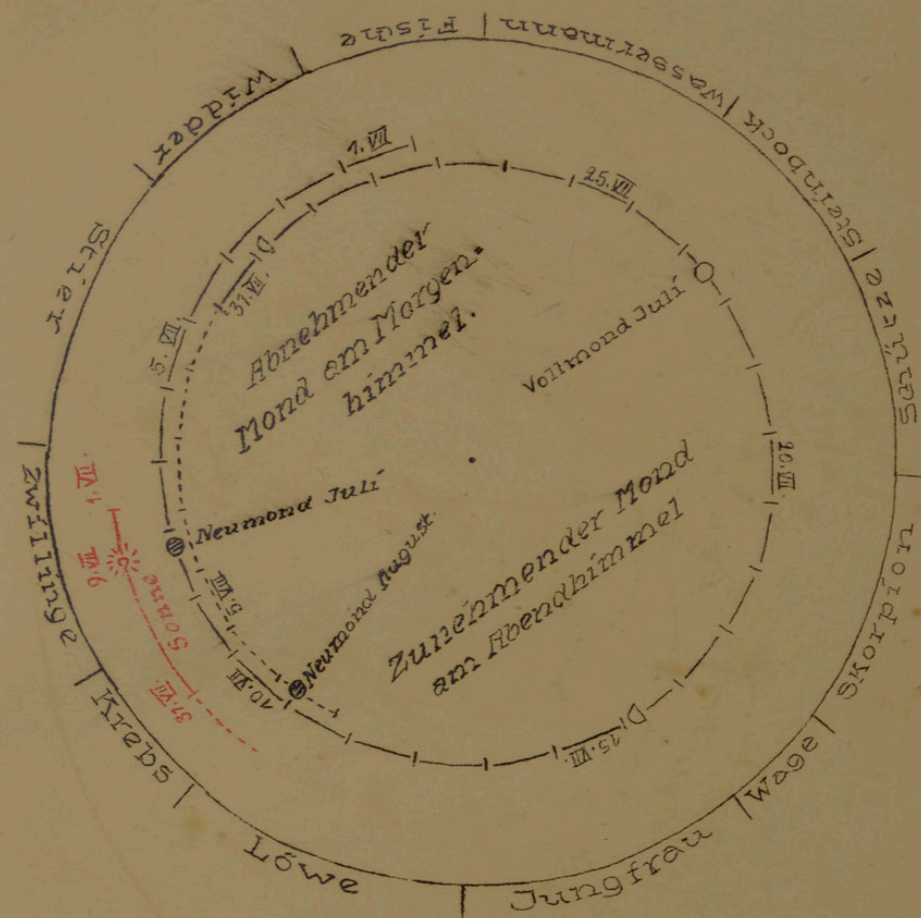 Fische
Wassermann
Steinbock
Schütze
Skorpion
Wage
Jungfrau
Löwe
Krebs
Zwillinge
Stier
Widder
1. VII
25. VII
31. VII.
5. VII
Abnehmender
Mond am Morgen-
himmel.
Vollmond Juli
20. VII.
Neumond Juli
Neumond August.
Zunehmender Mond
am Abendhimmel
10. VII
15. VII.
1. VII.
9. VII
Sonne
31. VII.